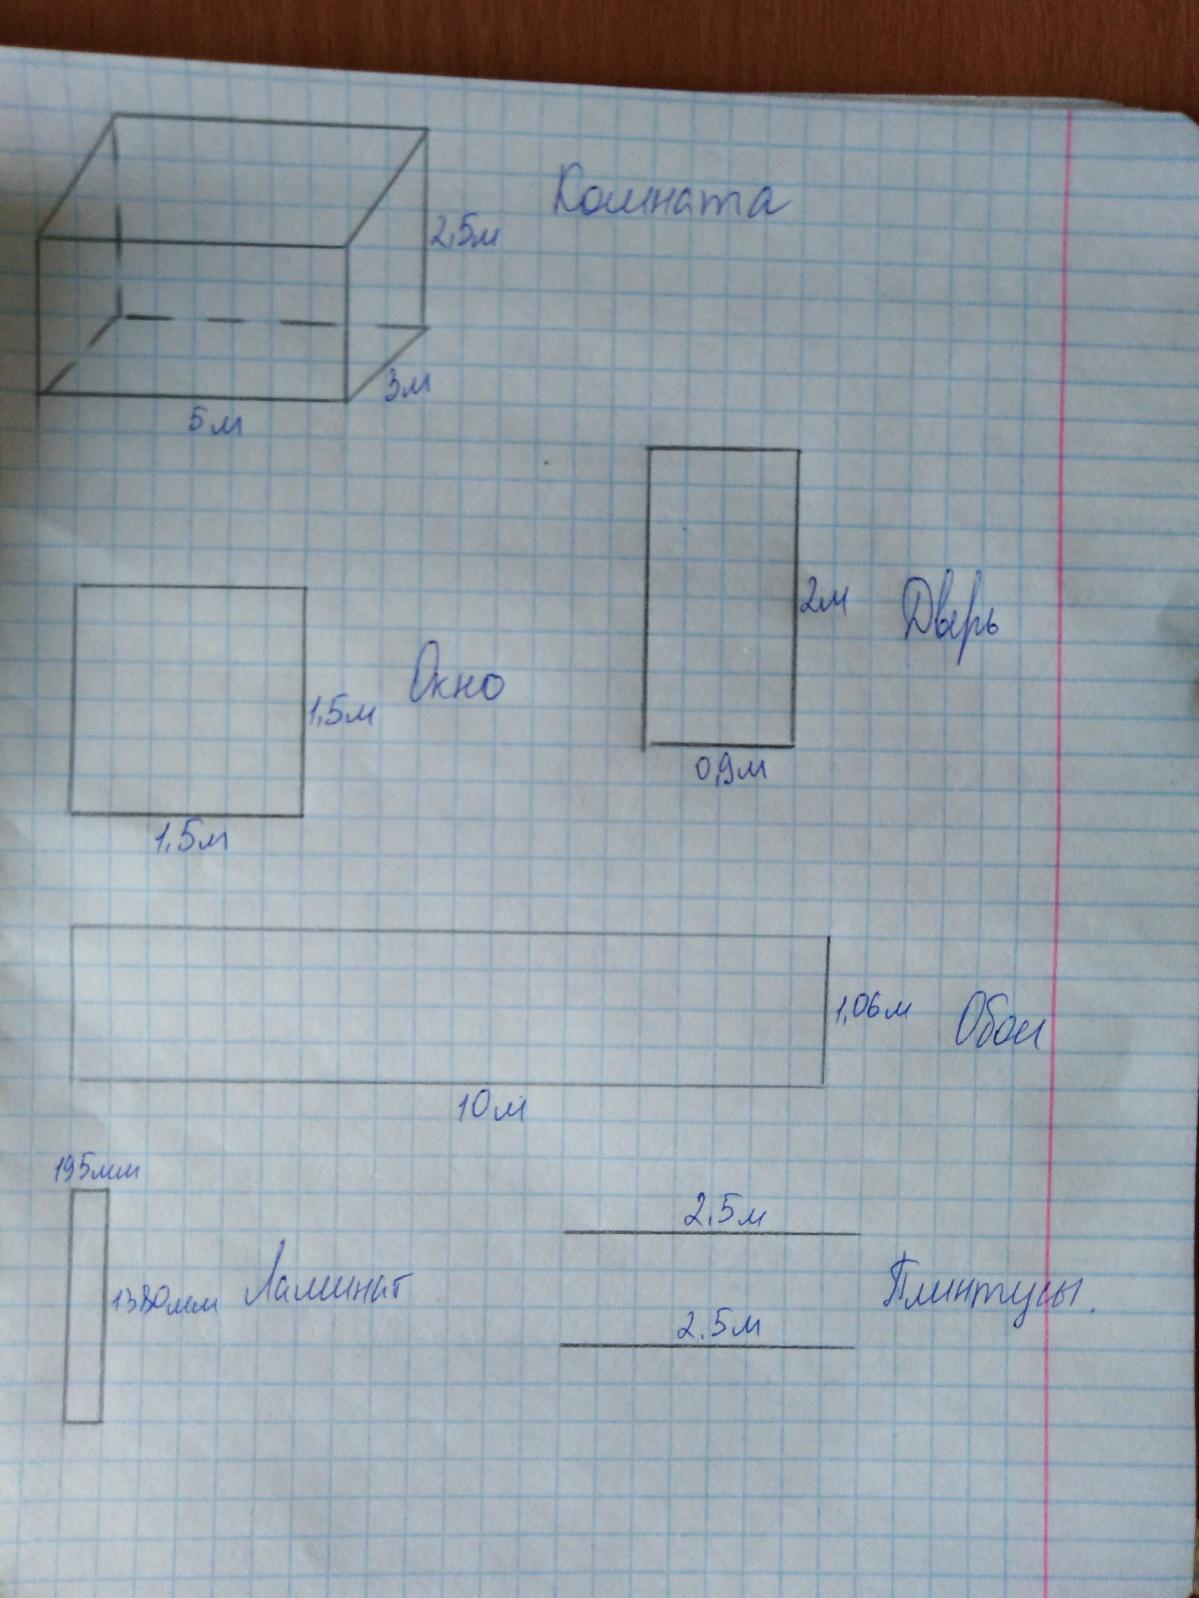 Комната
2,5м
3м
5м
2м
Дверь
Окно
1,5м
0,9м
1,5м
1,06м
Обои
10м
195мм
2.5м
1380мм
Ламинат
Плинтусы.
2.5м